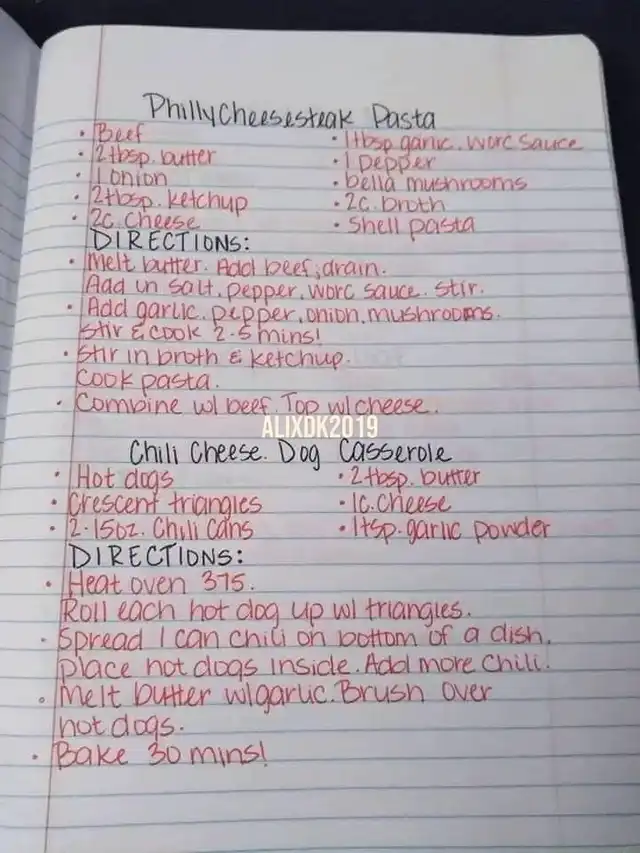 PhillyCheesesteak Pasta
• Beef
• 2tbsp. butter
• 1 onion
• 2tbsp. ketchup
• 2c. cheese
• 1tbsp garlic. worc sauce
• 1 pepper
• bella mushrooms
• 2c. broth
• shell pasta
DIRECTIONS:
• Melt butter. Add beef; drain.
Add in salt, pepper, worc sauce. stir.
• Add garlic, pepper, onion, mushrooms.
stir & cook 2-5 mins!
• stir in broth & ketchup.
cook pasta.
• Combine w/ beef. Top w/ cheese.
ALIXDK2019
Chili Cheese. Dog Casserole
• Hot dogs
• Crescent triangles
• 2-15oz. Chili cans
• 2tbsp. butter
• 1c. cheese
• 1tsp. garlic powder
DIRECTIONS:
• Heat oven 375.
Roll each hot dog up w/ triangles.
• Spread 1 can chili on bottom of a dish.
Place hot dogs inside. Add more chili.
• Melt butter w/garlic. Brush over
hot dogs.
• Bake 30 mins!